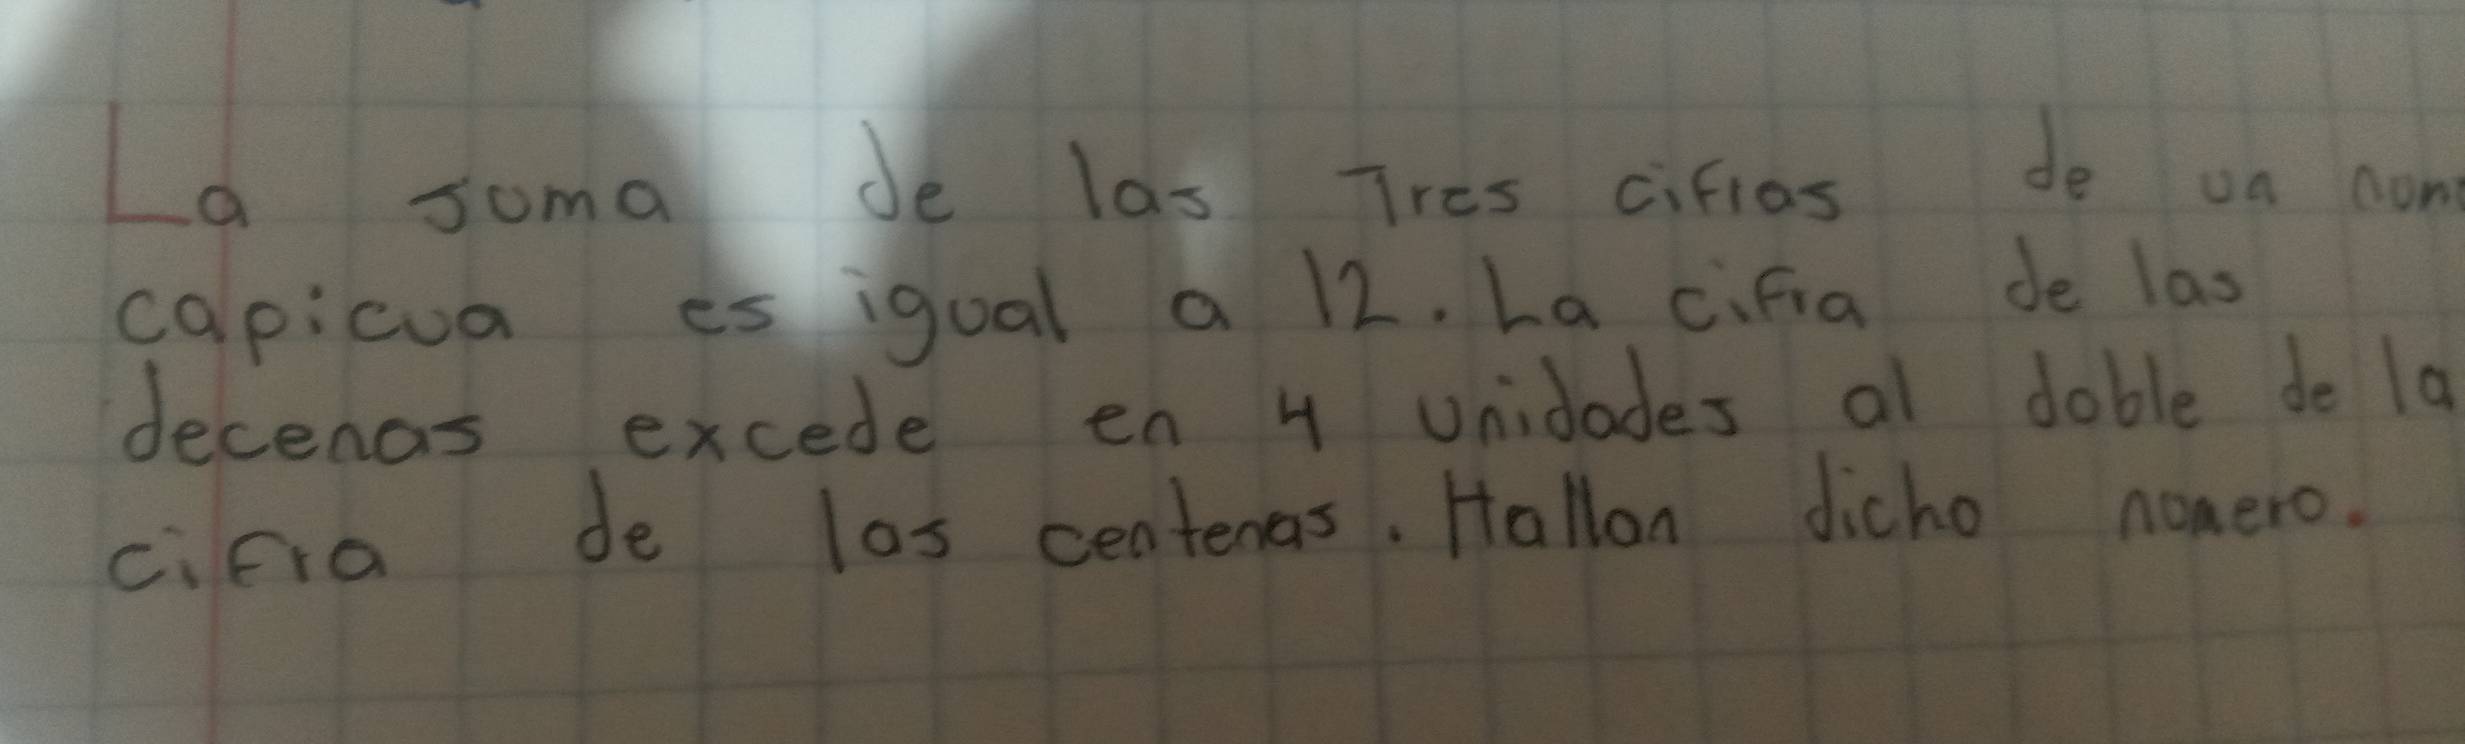 La suma de las Tres cifras de un
capicua es igual a 12. La cifra de las
decenas excede en 4 unidades al doble de la
cifra de las centenas. Hallon dicho numero.